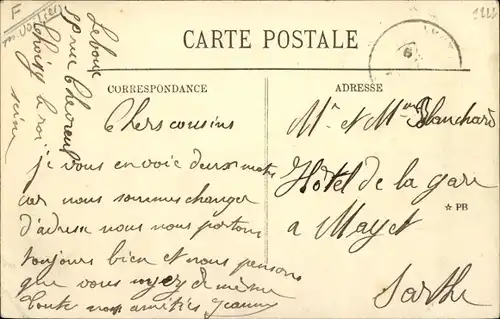 F
CARTE POSTALE
Leboux
rue Chevreul
Choisy le roi
seine
CORRESPONDANCE
Chers cousins
je vous envoie deux mots
car nous sommes changer
d'adresse nous nous portons
toujours bien et nous pensons
que vous soyez de même
toute nos amitiés Jeanne
ADRESSE
Mr et Mme Blanchard
Hôtel de la gare
a Mayet
☆ PB
Sarthe